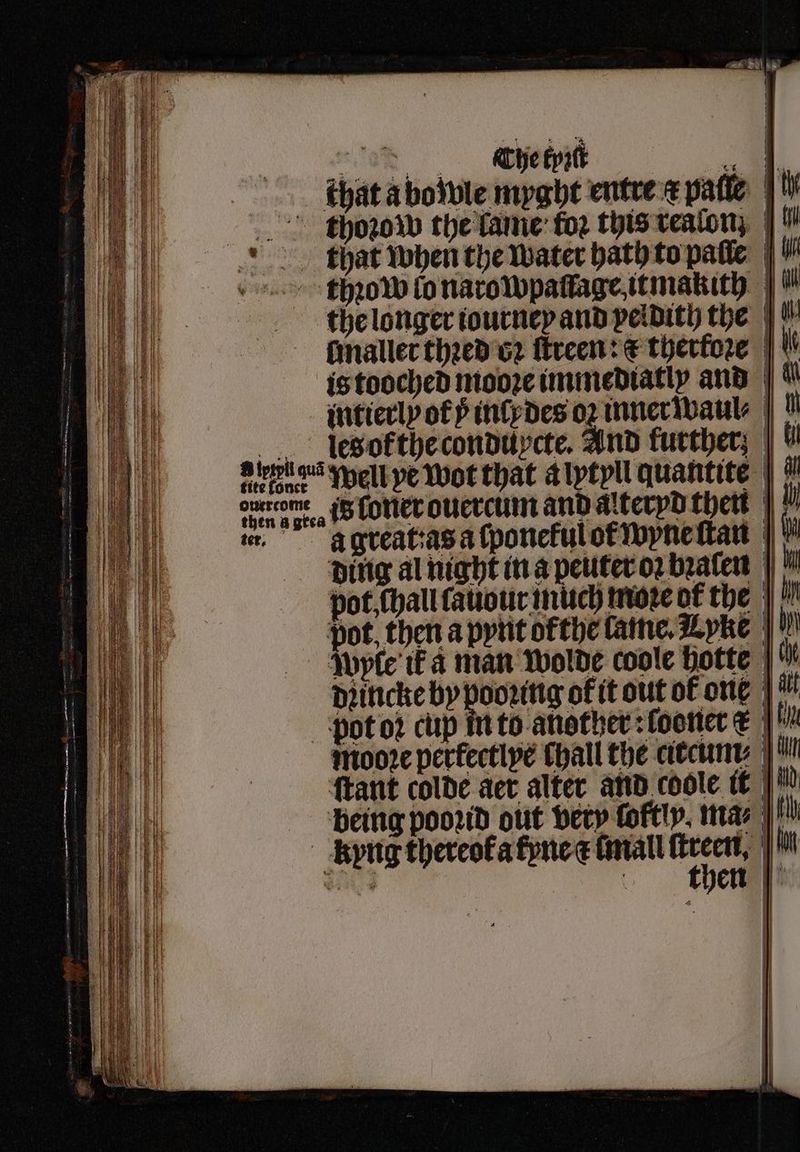 The fyrst
that a bowle myght entre & passe
thorow the same for this reason;
that when the water hath to passe
throw so narow passage, it makith
the longer iourney and yeldith the
smaller thred or streen: & therfore
is tooched moore immediatly and
intierly of þ insydes or inner waul⸗
les of the conduycte. And further;
well ye wot that a lytyll quantite
is soner ouercum and alteryd then
a great: as a sponeful of wyne stan
ding al night in a peuter or brasen
pot, shall sauour much more of the
pot, then a pynt of the same. Lyke
wyse if a man wolde coole hotte
drincke by pooring of it out of one
pot or cup in to another: sooner &
moore perfectlye shall the circum⸗
stant colde aer alter and coole it
being poorid out very softly, ma⸗
kyng therof a fyne & small streen,
then
A lytyll quā
tite soner
ouercome
then a grea
ter.